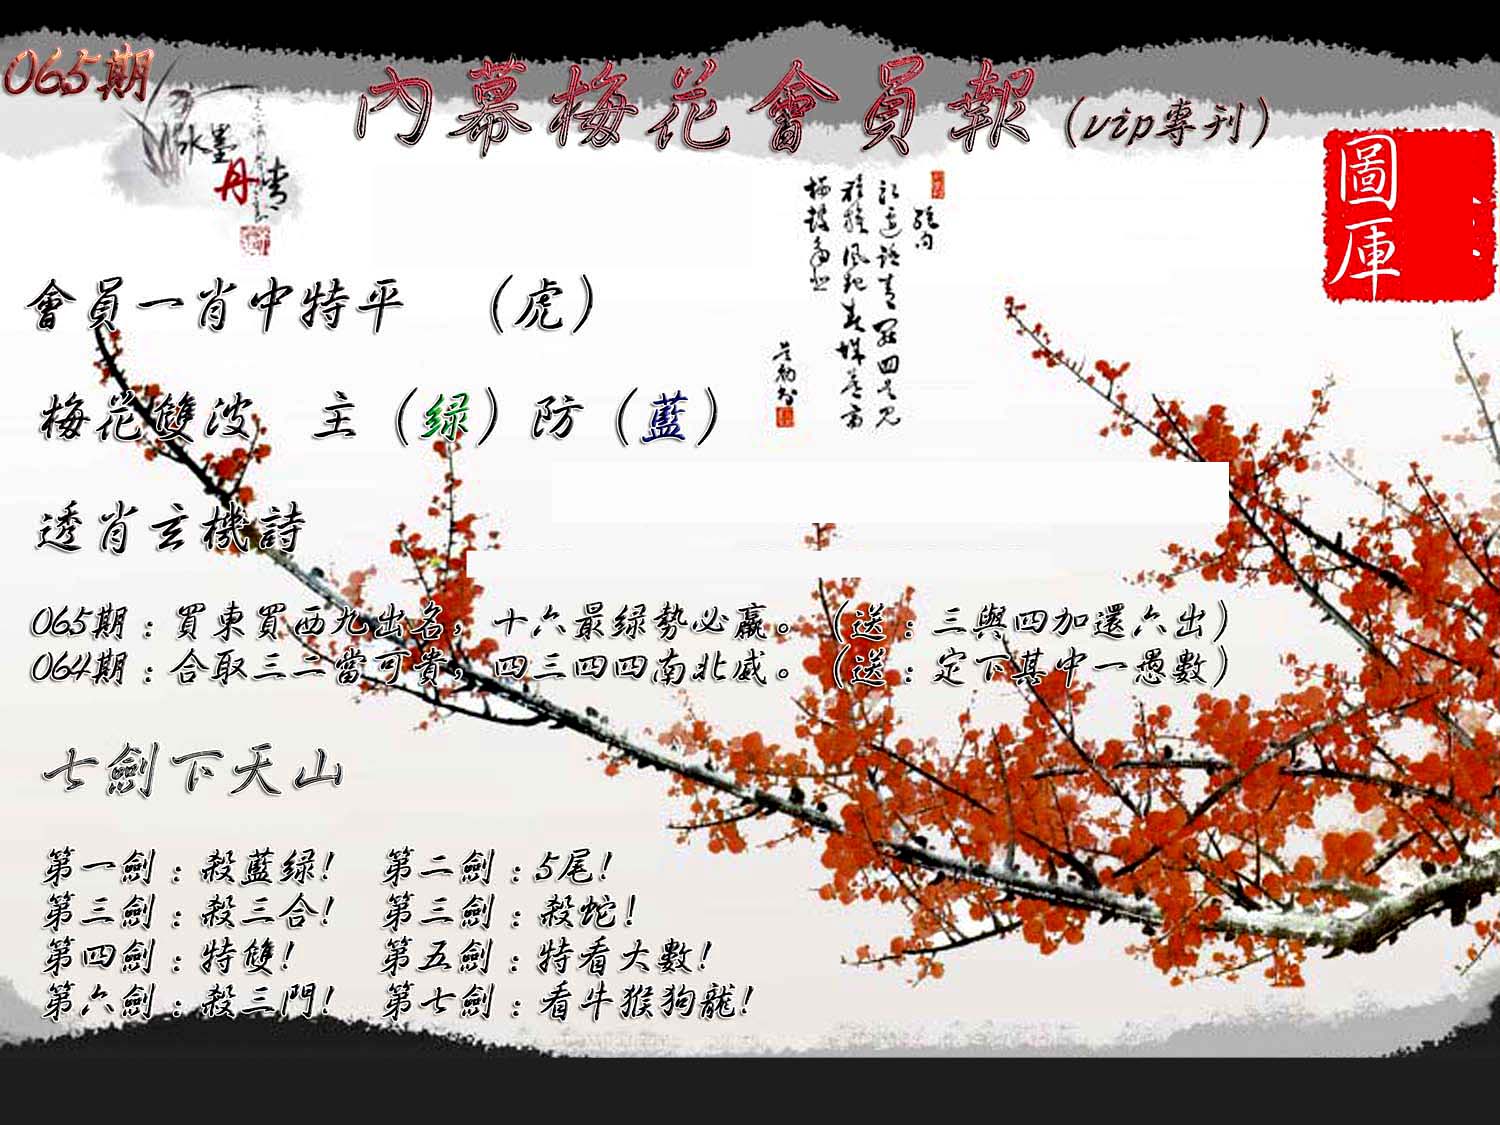 065期
內幕梅花會員報(vip專刊)
水墨
丹青
圖庫
會員一肖中特平 (虎)
梅花雙波 主(綠)防(藍)
透肖玄機詩
065期:買東買西九出名,十六最綠勢必贏。(送:三與四加還六出)
064期:合取三二當可貴,四三四四南北威。(送:定下其中一愚數)
七劍下天山
第一劍:殺藍綠! 第二劍:5尾!
第三劍:殺三合! 第三劍:殺蛇!
第四劍:特雙! 第五劍:特看大數!
第六劍:殺三門! 第七劍:看牛猴狗龍!